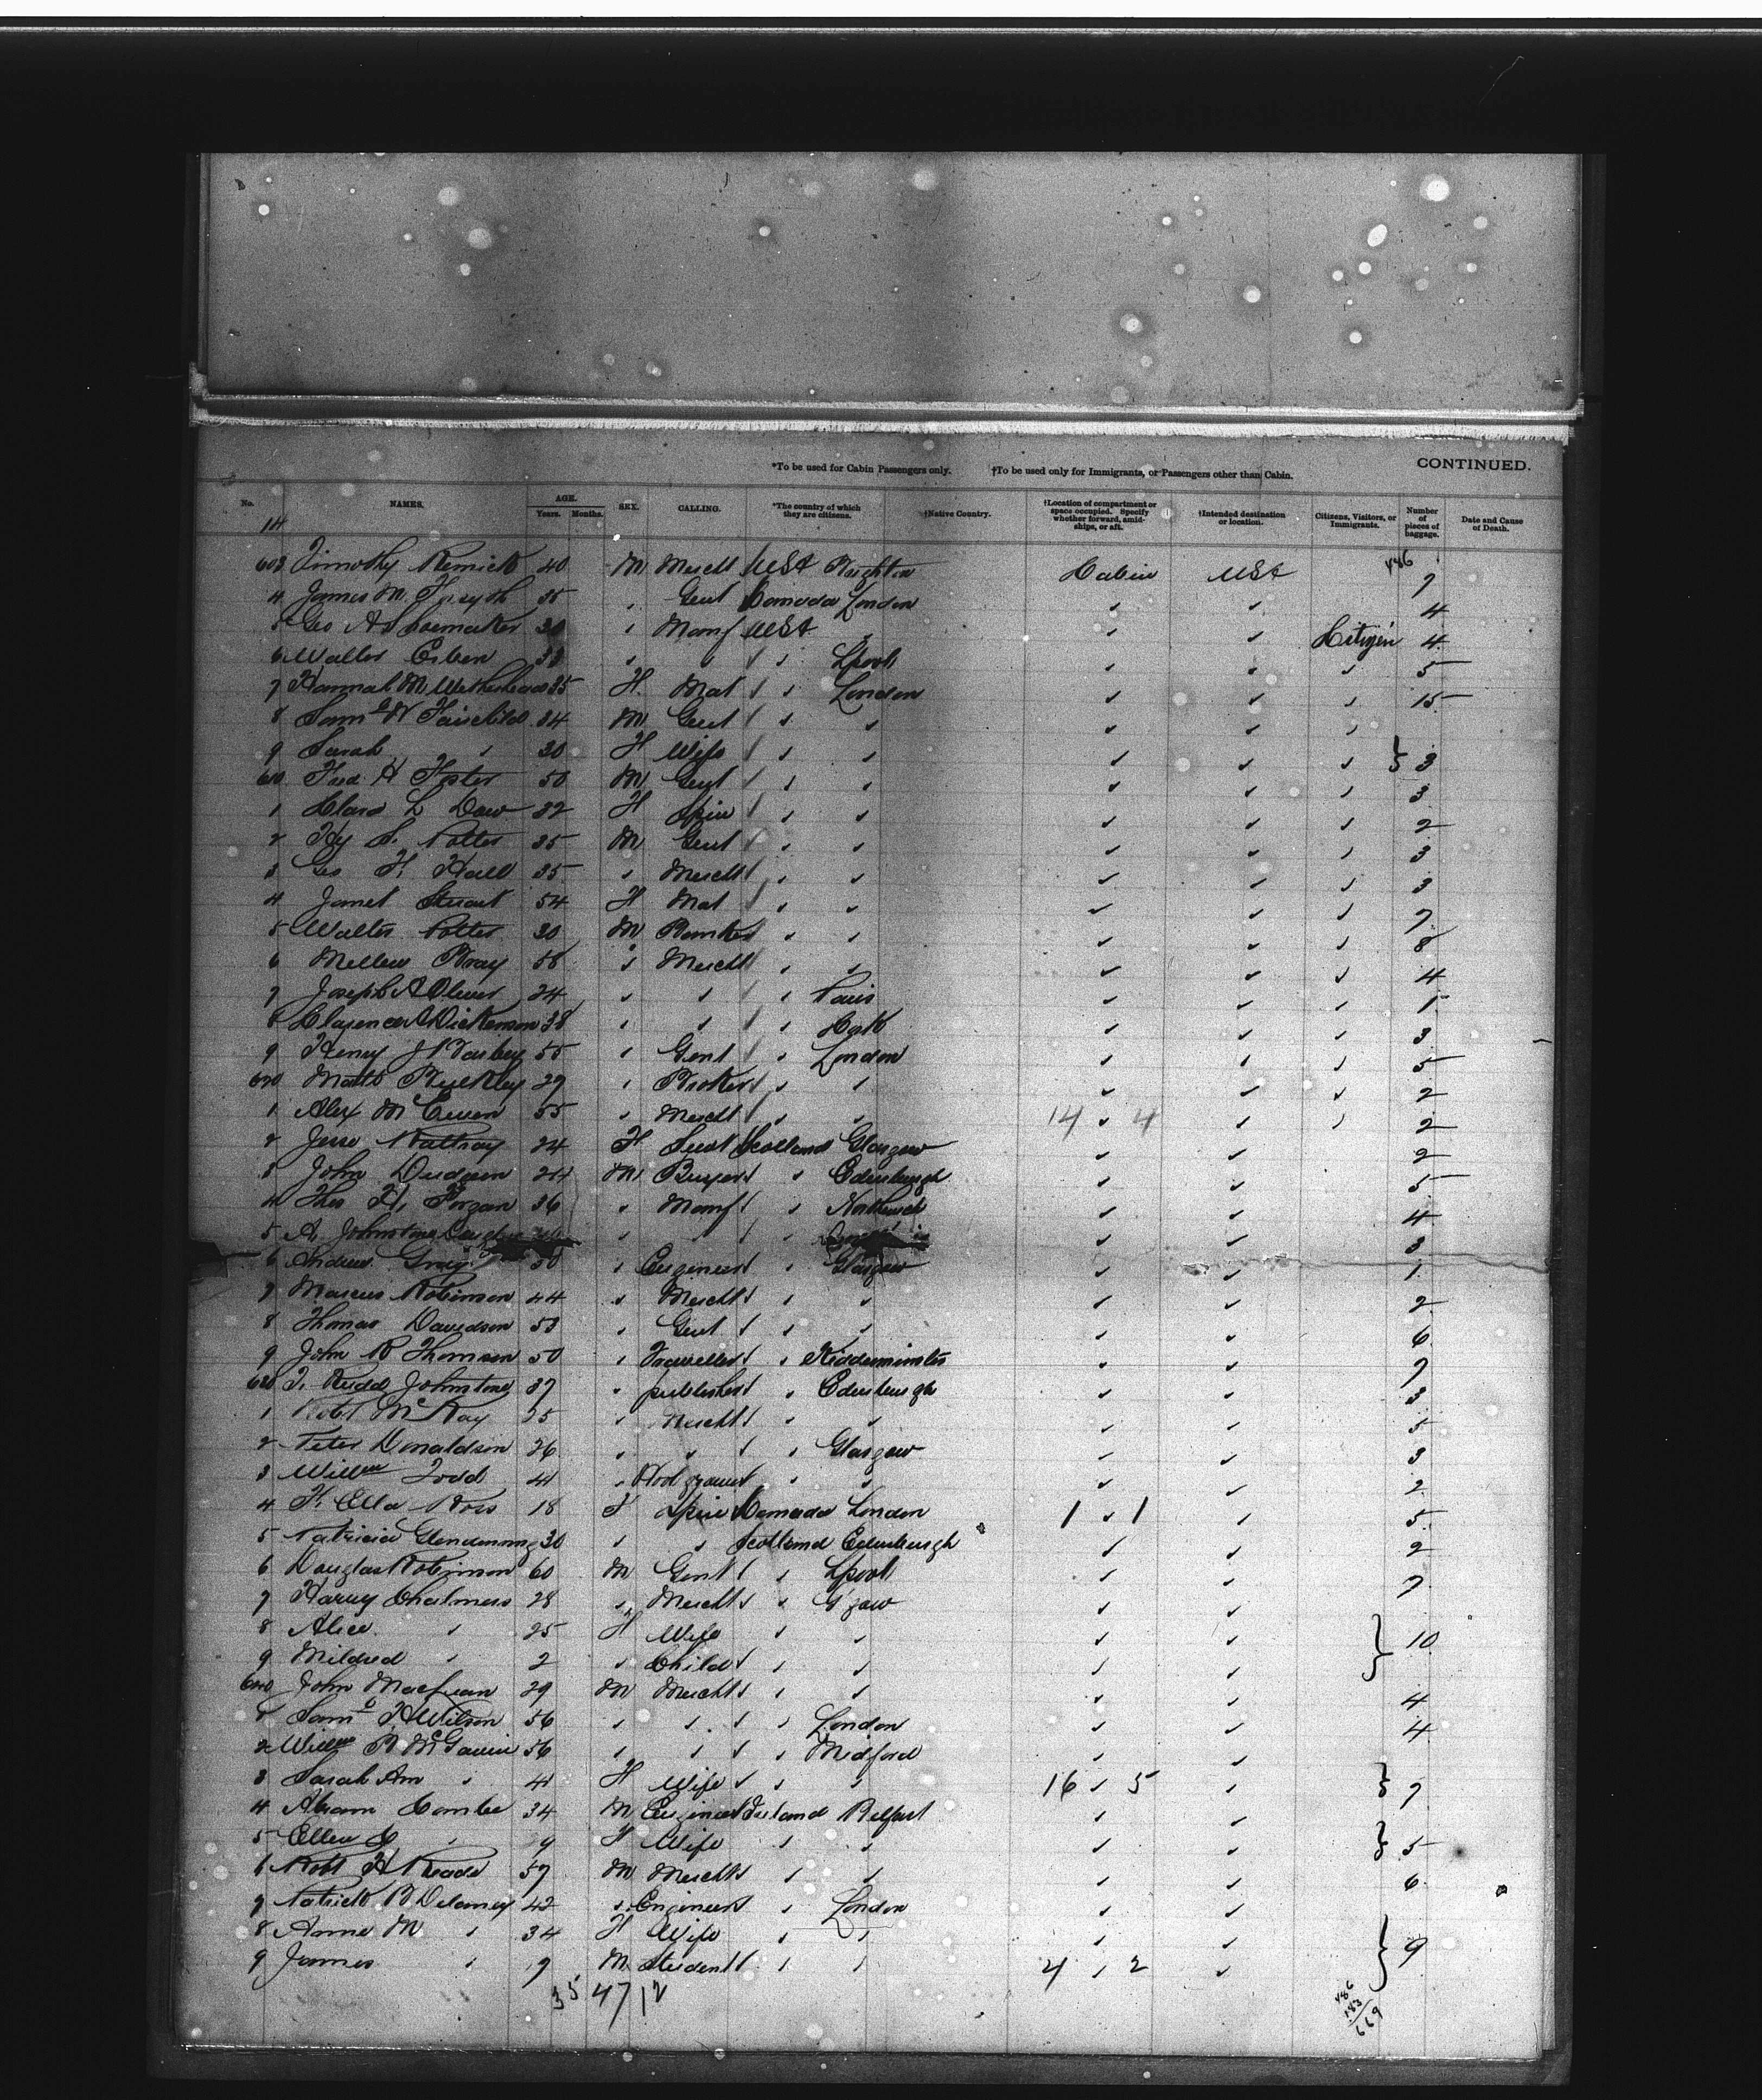 *To be used for Cabin Passengers only. †To be used only for Immigrants, or Passengers other than Cabin. CONTINUED.
No. NAMES. AGE. Years. Months. SEX. CALLING. *The country of which they are citizens. †Native Country. †Location of compartment or space occupied. Specify whether forward, amidships, or aft. †Intended destination or location. Citizens, Visitors, or Immigrants. Number of pieces of baggage. Date and Cause of Death.
14
486
603 Timothy Remick 40 M Mercht USA Brighton Cabin USA 7
4 James M. Forsyth 35 " Gent Canada London " " 4
5 Geo A Shoemaker 30 " Manf USA " " " Citizen 4
6 Walter 33 " " " Lpool " " " 5
7 Hannah M 35 F Mat " London " " " 15
8 Saml N Fairchild 34 M Gent " " " " "
9 Sarah " 30 F Wife " " " " " } 3
610 Fred H Foster 50 M Gent " " " " " 3
1 Clara L Daw 32 F Spin " " " " " 2
2 Hy S. Potter 35 M Gent " " " " " 3
3 Geo F. Hall 35 " Mercht " " " " " 3
4 Janet Stuart 54 F Mat " " " " " 7
5 Walter Potter 30 M Banker " " " " " 8
6 Mellen Bray 58 " Mercht " " " " " 4
7 Joseph A Oliver 24 " " " Paris " " " 1
8 Clarence A Dickerson 38 " " " Cork " " " 3
9 Henry J 55 " Gent " London " " " 5
620 Matts Bulkley 29 " Broker " " " " " 2
1 Alex McEwen 55 " Mercht " " 14 " 4 " " 2
2 Jesse Rattray 24 F Scotland Glasgow " " 2
3 John Dudgeon 24 M Buyer " Edinburgh " " 5
4 Thos H. Forgan 36 " Manf " " " 4
5 A. Johnstone Douglas " " " " " 3
6 Andrew Greig 50 " Engineer " Glasgow " " 1
7 Marcus Robinson 44 " Mercht " " " " 2
8 Thomas Davidson 53 " Gent " " " " 6
9 John R Thomson 50 " Traveller " Kidderminster " " 7
630 T. Rudd Johnstone 37 " publisher " Edinburgh " " 3
1 Robt McKay 25 " Mercht " " " " 5
2 Peter Donaldson 26 " " " Glasgow " " 3
3 Willm Todd 41 " " " " " 2
4 F. Ella Ross 18 F Spin Canada London 1 " 1 " 5
5 Patricia Glendenning 30 " " Scotland Edinburgh " " 2
6 Douglas Robinson 60 M Gent " Lpool " " 7
7 Harvey Chalmers 28 " Mercht " G'gow " "
8 Alice " 25 F Wife " " " " } 10
9 Mildred " 2 " Child " " " "
640 John Macfuan 29 M Mercht " " " " 4
1 Saml H Wilson 56 " " " London " " 4
2 Willm R McGavin 56 " " " Medford " "
3 Sarah Ann " 41 F Wife " " 16 " 5 " } 7
4 Abram Combe 34 M Engineer Ireland Belfast " "
5 Ellen C " 9 F Wife " " " " } 5
6 Robt H Reade 57 M Mercht " " " " 6
7 Patrick B Delaney 42 " Engineer " London " "
8 Anne M " 34 F Wife " " " " } 9
9 James " 9 M Student " " 4 " 2 "
35 47 12
486
183
669